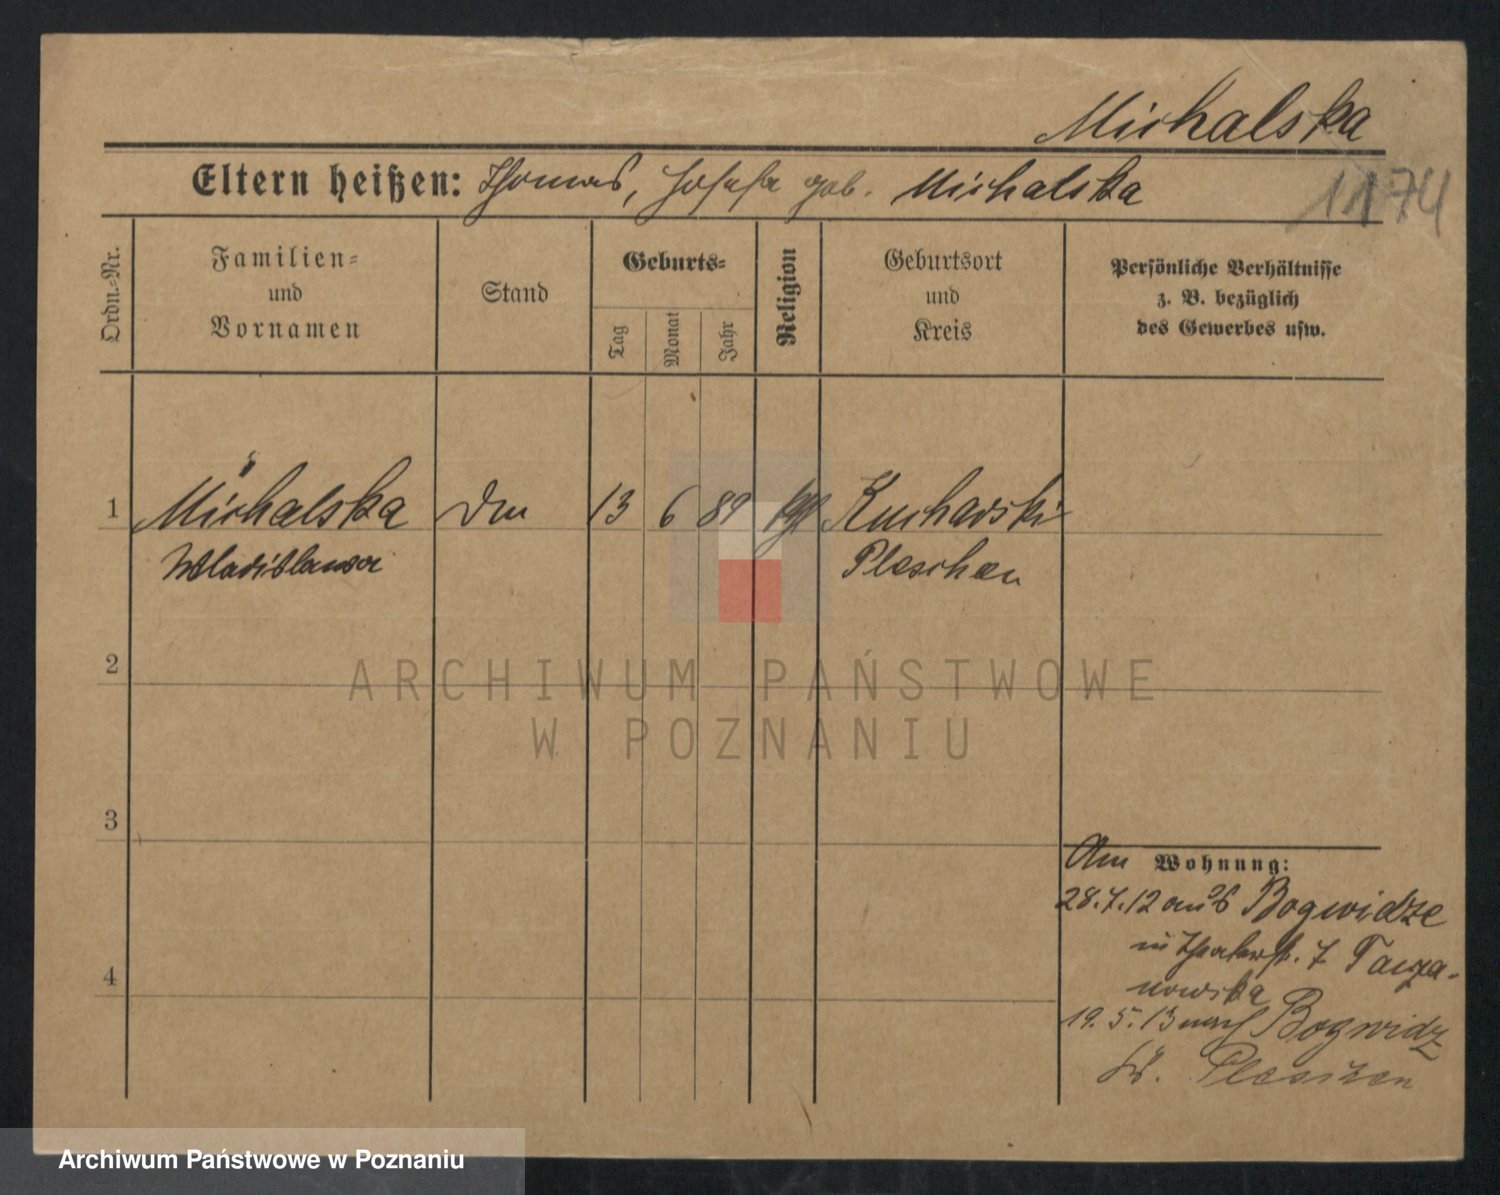 Michalska
Eltern heißen: Thomas, Josefa geb. Michalska
1174
Ordn.-Nr.
Familien-
und
Vornamen
Stand
Geburts-
Tag
Monat
Jahr
Religion
Geburtsort
und
Kreis
Persönliche Verhältnisse
z. B. bezüglich
des Gewerbes usw.
1 Michalska 13 6 89 Kucharski
Wladislawa Pleschen
2
3
4
Am Wohnung:
28.7.12 aus Bogwidze
in Theaterstr. 7
nowska
19.5.13 nach Bogwidz
Kr. Pleschen
ARCHIWUM PAŃSTWOWE
W POZNANIU
Archiwum Państwowe w Poznaniu